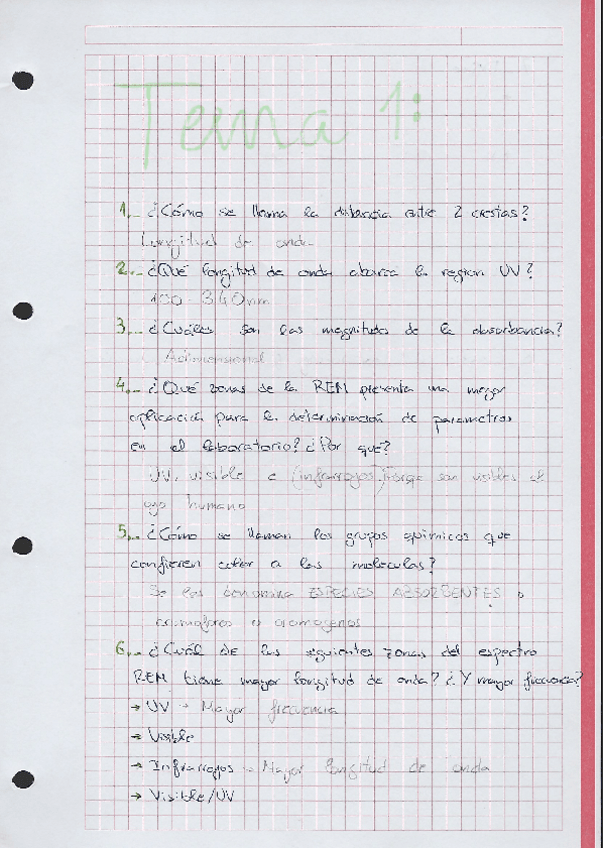 Tema 1:
1.- ¿Cómo se llama la distancia entre 2 crestas?
Longitud de onda
2.- ¿Qué longitud de onda abarca la region UV?
100 - 340nm
3.- ¿Cuáles son las magnitudes de la absorbancia?
Adimensional
4.- ¿Qué zonas de la REM presenta una mayor
aplicación para la determinación de parametros
en el laboratorio? ¿Por qué?
UV, visible e (infrarrojos) Porque son visibles al
ojo humano
5.- ¿Cómo se llaman los grupos químicos que
confieren color a las moleculas?
Se les denomina ESPECIES ABSORBENTES o
cromoforos o cromogenos
6.- ¿Cuál de las siguientes zonas del espectro
REM tiene mayor longitud de onda? ¿Y mayor frecuencia?
→ UV → Mayor frecuencia
→ Visible
→ Infrarrojos → Mayor longitud de onda
→ Visible/UV